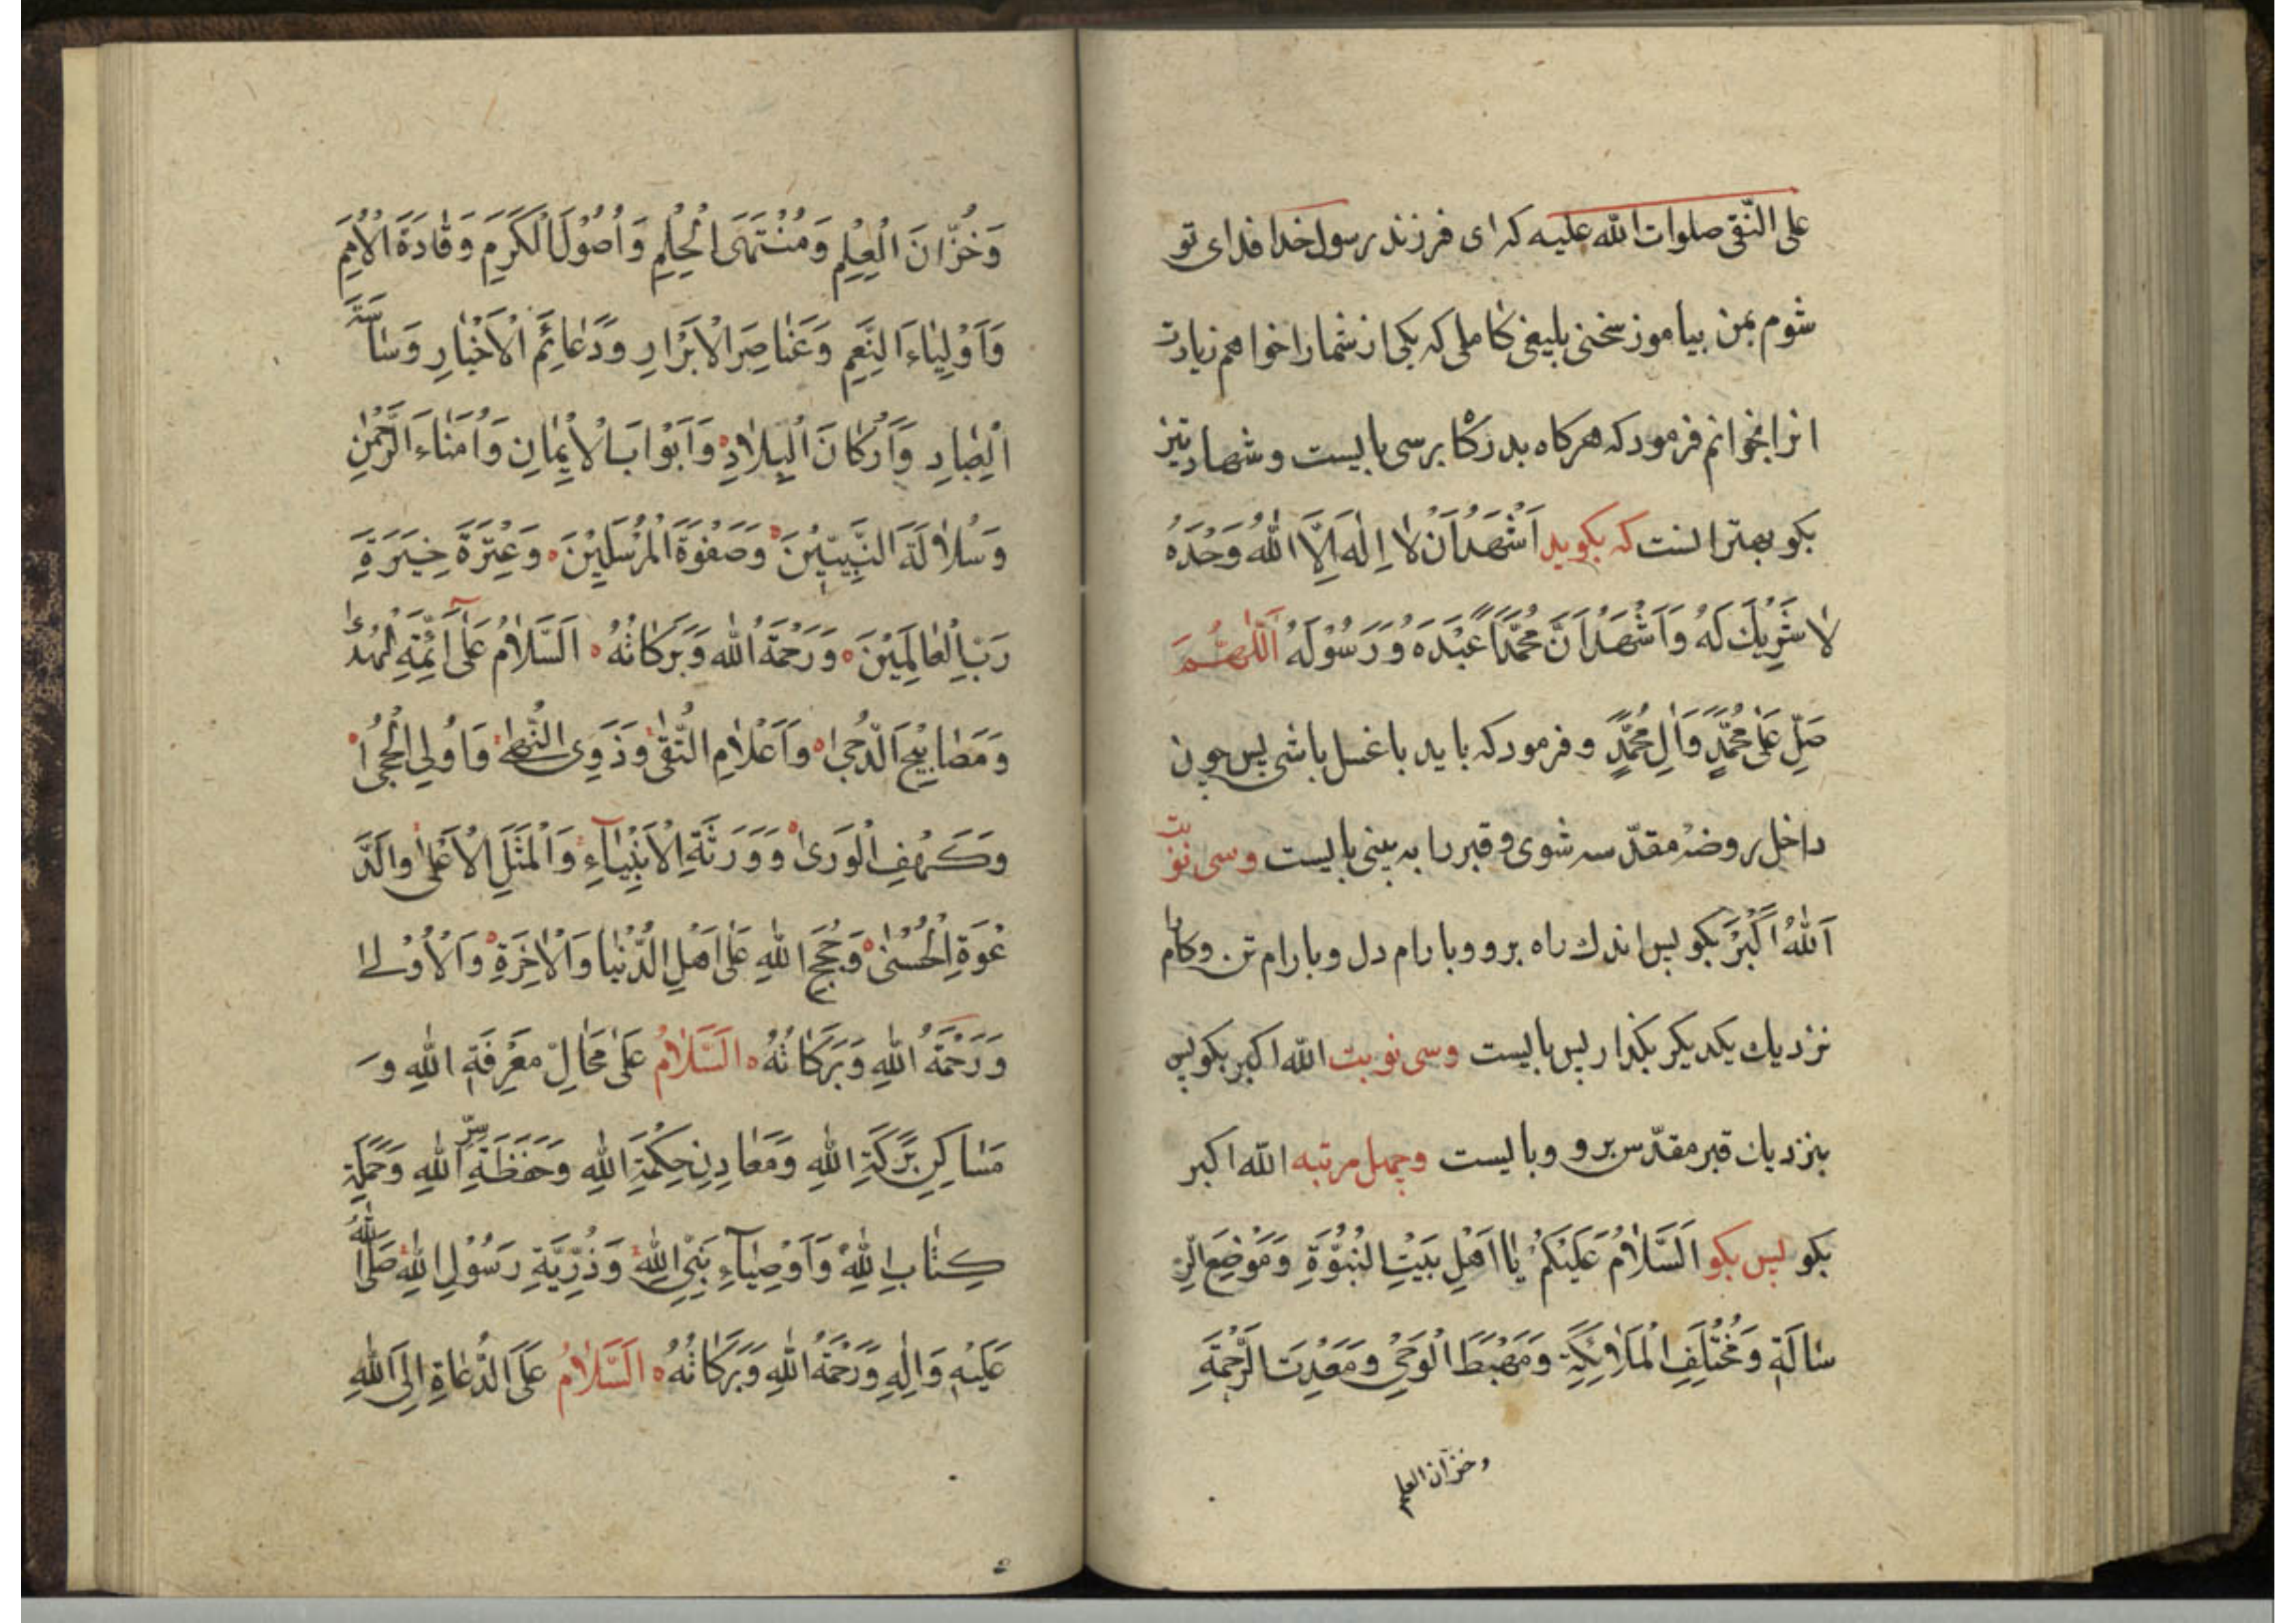 علی النّقی صلوات الله علیه که ای فرزند رسول خدا فدای تو
شوم بمن بیاموز سخنی بلیغی کاملی که یکی از شما را خواهم زیارت
انرا بخوانم فرمود که هرکاه بدرکا برسی بایست و شهادتیز
بکو بهتر انست که بکوید اَشْهَدُ اَنْ لٰا اِلٰهَ اِلَّا اللّٰهُ وَحْدَهُ
لٰا شَرِیكَ لَهُ وَاَشْهَدُ اَنَّ مُحَمَّدًا عَبْدَهُ وَرَسُوْلَهُ اَللّٰهُمَّ
صَلِّ عَلٰی مُحَمَّدٍ وَاٰلِ مُحَمَّدٍ و فرمود که باید با غسل باشی پس چون
داخل روضهٔ مقدّسه شوی و قبر را به بینی بایست وسی نوبت
اَللّٰهُ اَکْبَرُ بکو پس اندك راه برو و بارام دل و بارام تن و کامها
نزدیك یکدیکر بکذار پس بایست وسی نوبت الله اکبر بکو پس
بنزدیك قبر مقدّس برو و بایست وچهل مرتبه الله اکبر
بکو پس بکو اَلسَّلٰامُ عَلَیْکُمْ یٰا اَهْلِ بَیْتِ النُّبُوَّةِ وَمَوْضِعَ الرِّ
سٰالَةِ وَمُخْتَلِفِ الْمَلٰائِکَةِ وَمَهْبَطَ الْوَحْیِ وَمَعْدِنَ الرَّحْمَةِ
وخزّان العلم
وَخُزّٰانَ الْعِلْمِ وَمُنْتَهَی الْحِلْمِ وَاُصُوْلَ الْکَرَمِ وَقٰادَةَ الْاُمَمِ
وَاَوْلِیٰاءَ النِّعَمِ وَعَنٰاصِرَ الْاَبْرٰارِ وَدَعٰائِمَ الْاَخْیٰارِ وَسٰاسَةَ
الْعِبٰادِ وَاَرْکٰانَ الْبِلٰادِ وَاَبْوٰابَ الْاِیْمٰانِ وَاُمَنٰاءَ الرَّحْمٰنِ
وَسُلٰالَةَ النَّبِیِّیْنَ وَصَفْوَةَ الْمُرْسَلِیْنَ وَعِتْرَةَ خِیَرَةِ
رَبِّ الْعٰالَمِیْنَ وَرَحْمَةُ اللّٰهِ وَبَرَکٰاتُهُ اَلسَّلٰامُ عَلٰی اَئِمَّةِ الْهُدٰی
وَمَصٰابِیْحِ الدُّجٰی وَاَعْلٰامِ التُّقٰی وَذَوِی النُّهٰی وَاُولِی الْحِجٰی
وَکَهْفِ الْوَرٰی وَوَرَثَةِ الْاَنْبِیٰآءِ وَالْمَثَلِ الْاَعْلٰی والدَّ
عْوَةِ الْحُسْنٰی وَحُجَجِ اللّٰهِ عَلٰی اَهْلِ الدُّنْیٰا وَالْاٰخِرَةِ وَالْاُوْلٰی
وَرَحْمَةُ اللّٰهِ وَبَرَکٰاتُهُ اَلسَّلٰامُ عَلٰی مَحٰالِّ مَعْرِفَةِ اللّٰهِ وَ
مَسٰاکِنِ بَرَکَةِ اللّٰهِ وَمَعٰادِنِ حِکْمَةِ اللّٰهِ وَحَفَظَةِ سِرِّ اللّٰهِ وَحَمَلَةِ
کِتٰابِ اللّٰهِ وَاَوْصِیٰآءِ نَبِیِّ اللّٰهِ وَذُرِّیَّةِ رَسُوْلِ اللّٰهِ صَلَّی اللّٰهُ
عَلَیْهِ وَاٰلِهِ وَرَحْمَةُ اللّٰهِ وَبَرَکٰاتُهُ اَلسَّلٰامُ عَلَی الدُّعٰاةِ اِلَی اللّٰهِ